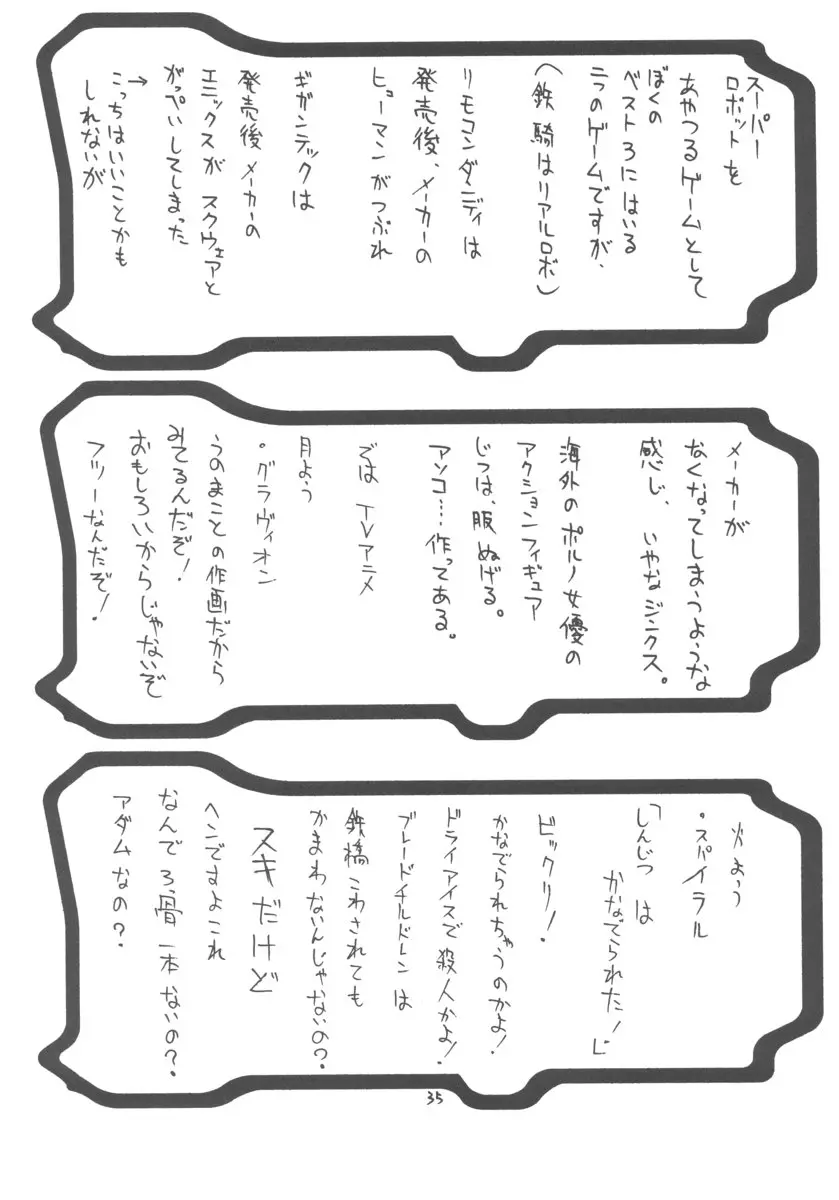 スーパー
ロボットを
あやつるゲームとして
ぼくの
ベスト3にはいる
二つのゲームですが、
(鉄騎はリアルロボ)
リモコンダンディは
発売後、メーカーの
ヒューマンがつぶれ
ギガンテックは
発売後メーカーの
エニックスがスクウェアと
がっぺいしてしまった
→こっちはいいことかも
しれないが
メーカーが
なくなってしまうような
感じ、いやなジンクス。
海外のポルノ女優の
アクションフィギュア
じつは、服ぬげる。
アソコ…作ってある。
では TVアニメ
月よう
・グラヴィオン
うのまことの作画だから
みてるんだぞ!
おもしろいからじゃないぞ
フツーなんだぞ!
火よう
・スパイラル
「しんじつは
かなでられた!」
ビックリ!
かなでられちゃうのかよ!
ドライアイスで殺人かよ!
ブレードチルドレンは
鉄橋こわされても
かまわないんじゃないの?
スキだけど
ヘンですよこれ
なんでろっ骨一本ないの?
アダムなの?
35